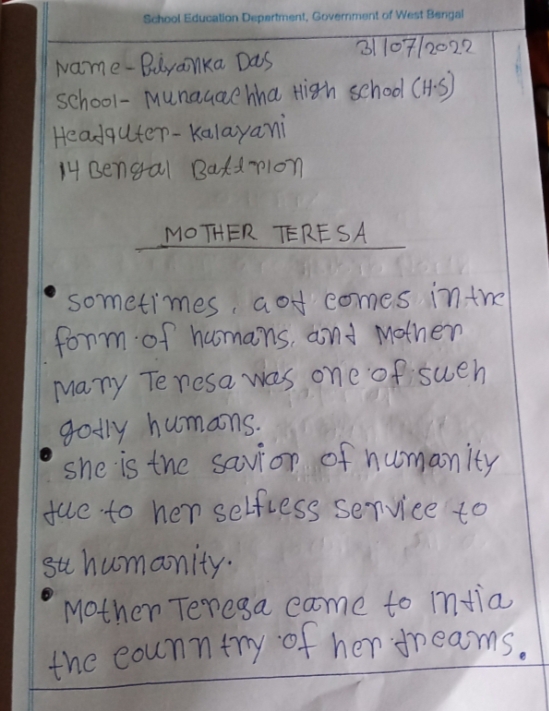 School Education Department, Government of West Bengal
31/07/2022
Name - Priyanka Das
School - Munagachha High school (H.S)
Headquter - Kalayani
14 Bengal Battnion
MOTHER TERESA
• sometimes, god comes in the
form of humans, and Mother
Mary Teresa was one of such
godly humans.
• she is the savior of humanity
due to her selfless service to
humanity.
• Mother Teresa came to India
the counntry of her dreams.